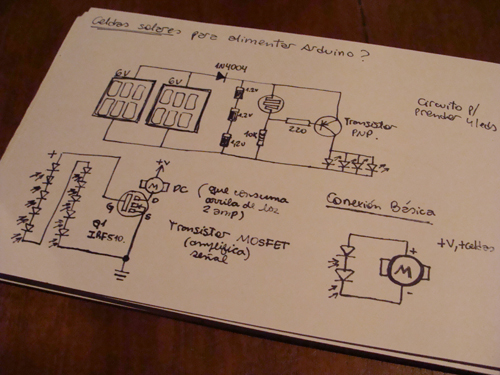 Celdas solares para alimentar Arduino?
6V
6V
1N4004
1,2V
1,2V
1,2V
10K
220
Transistor
PNP.
Circuito p/
prender 4 leds
+
+V
M
DC
G
D
S
Q1
IRF510.
(que consuma
arriba de los
2 amp)
Transistor MOSFET
(amplifica)
señal
Conexión Básica
+
M
-
+V,